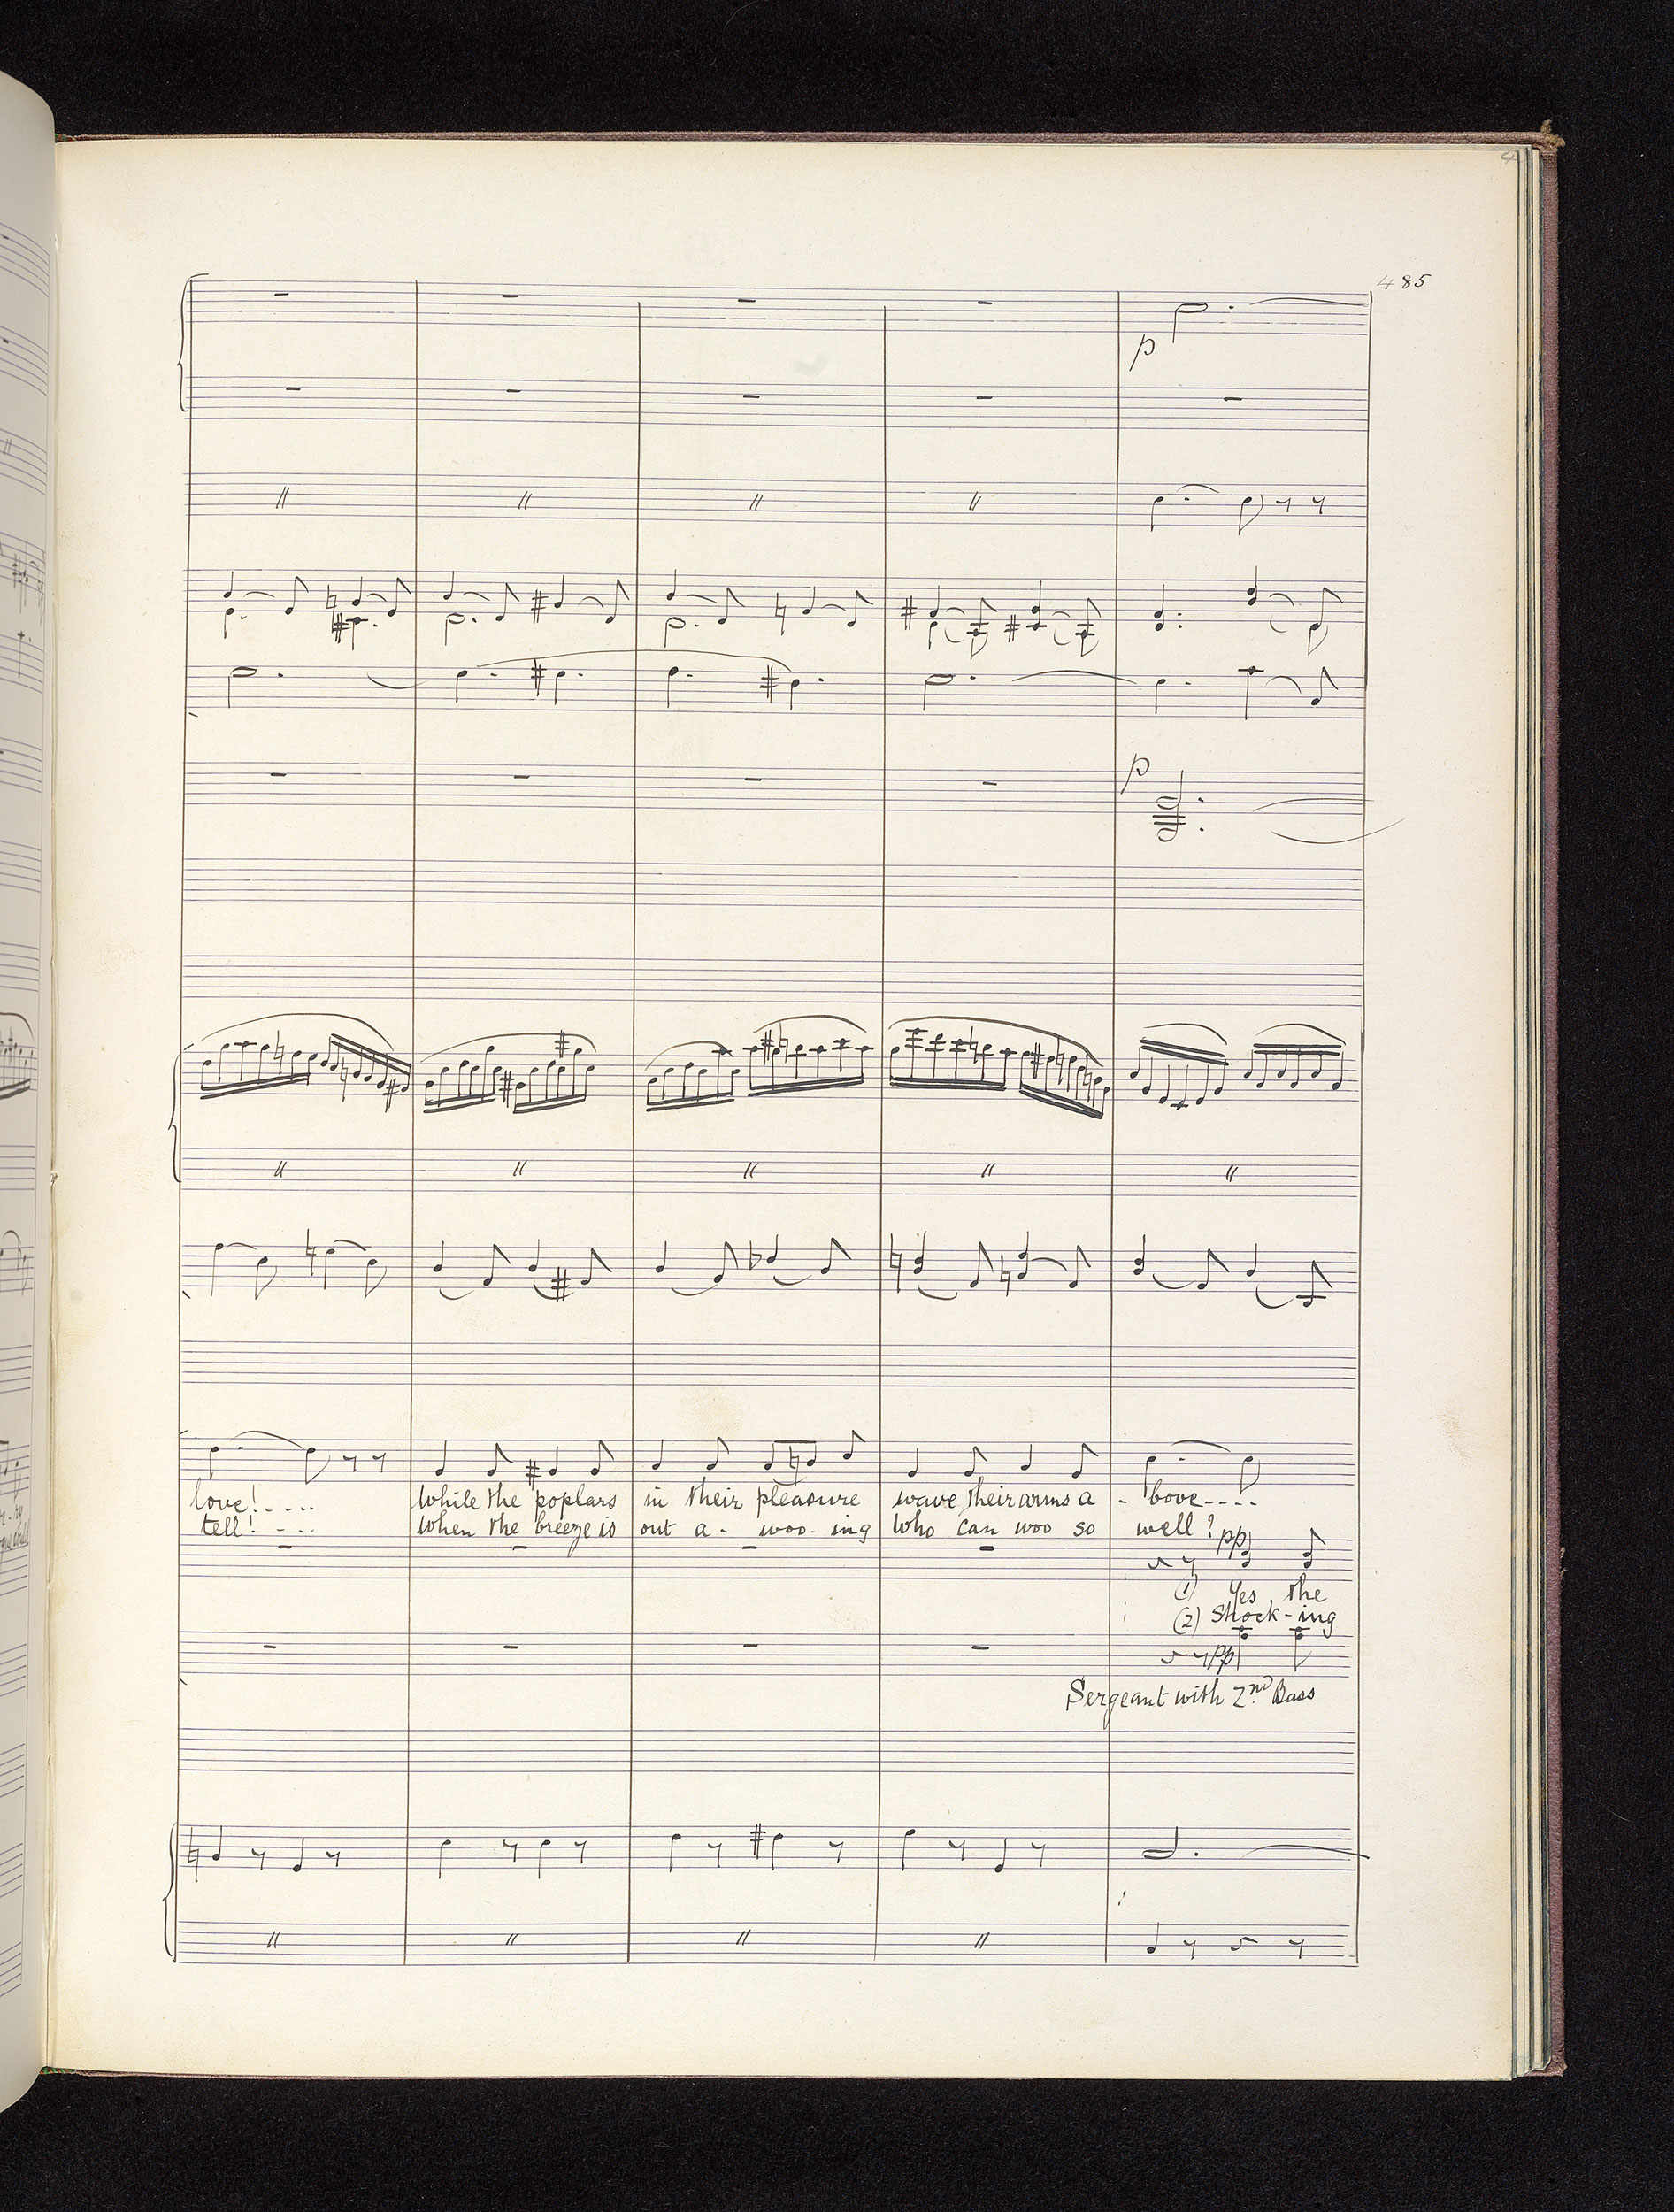 485
p
p
love! - - . .
while the poplars in their pleasure wave their arms a - bove - - - -
tell! - - . .
when the breeze is out a - woo - ing who can woo so well?
pp
(1) Yes the
(2) Shock - ing
pp
Sergeant with 2nd Bass